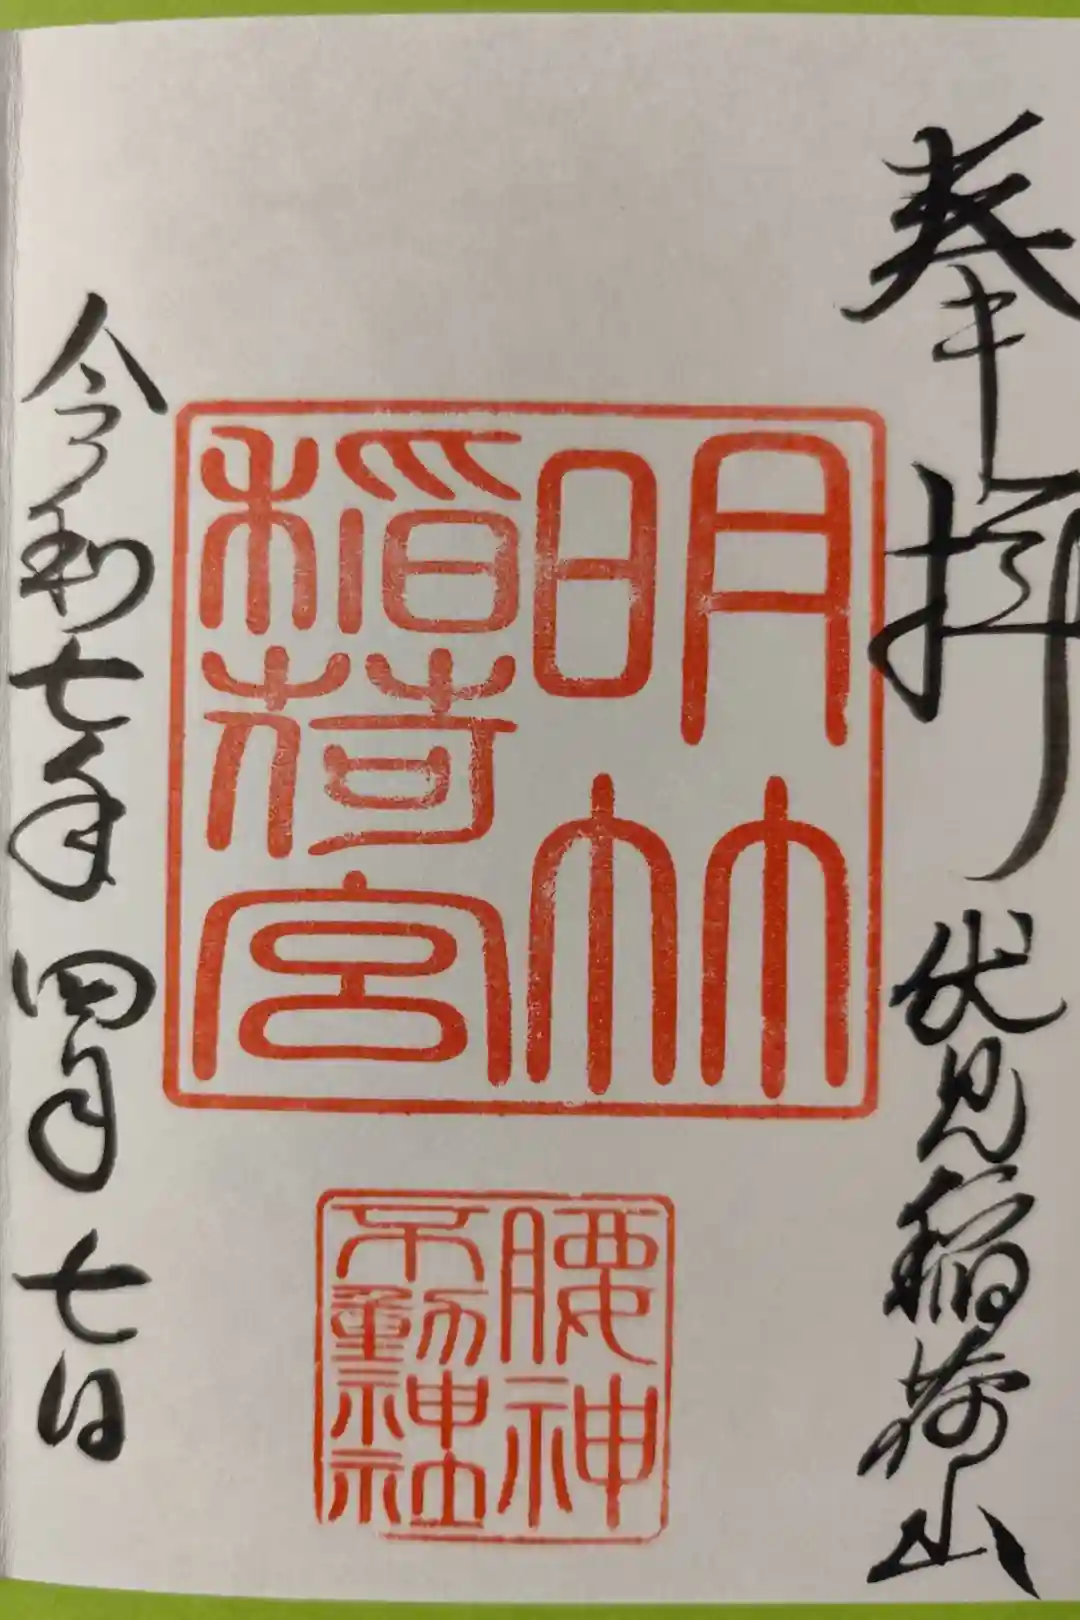 奉拝
伏見稲荷山
明竹
稲荷宮
腰神
不動神社
令和七年四月七日